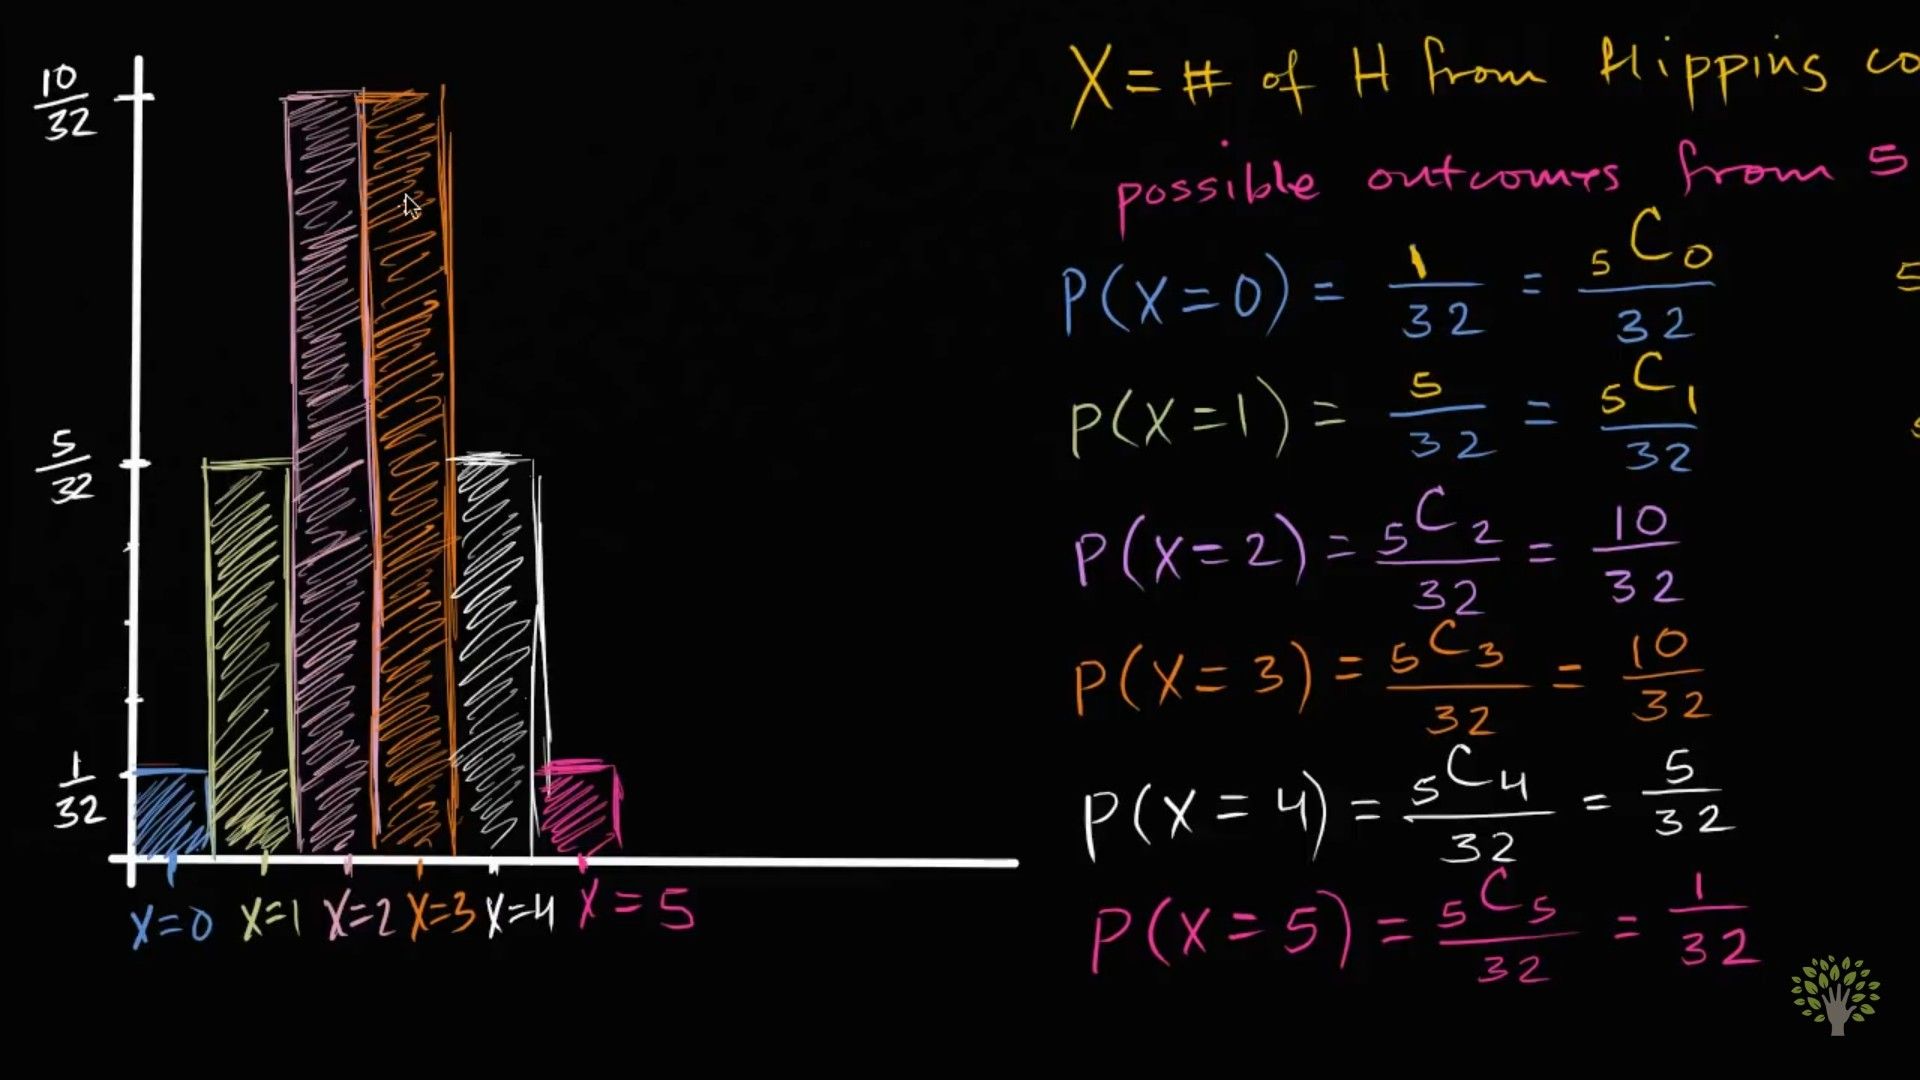 10/32
5/32
1/32
X=0 X=1 X=2 X=3 X=4 X=5
X = # of H from flipping co
possible outcomes from 5
P(X=0) = 1/32 = ₅C₀/32
5
P(X=1) = 5/32 = ₅C₁/32
P(X=2) = ₅C₂/32 = 10/32
P(X=3) = ₅C₃/32 = 10/32
P(X=4) = ₅C₄/32 = 5/32
P(X=5) = ₅C₅/32 = 1/32